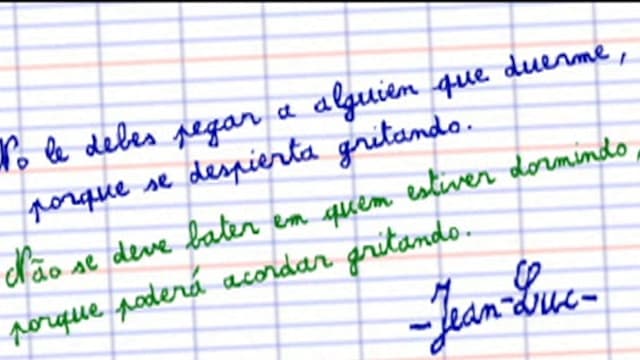 No le debes pegar a alguien que duerme,
porque se despierta gritando.
Não se deve bater em quem estiver dormindo,
porque poderá acordar gritando.
-Jean-Luc-